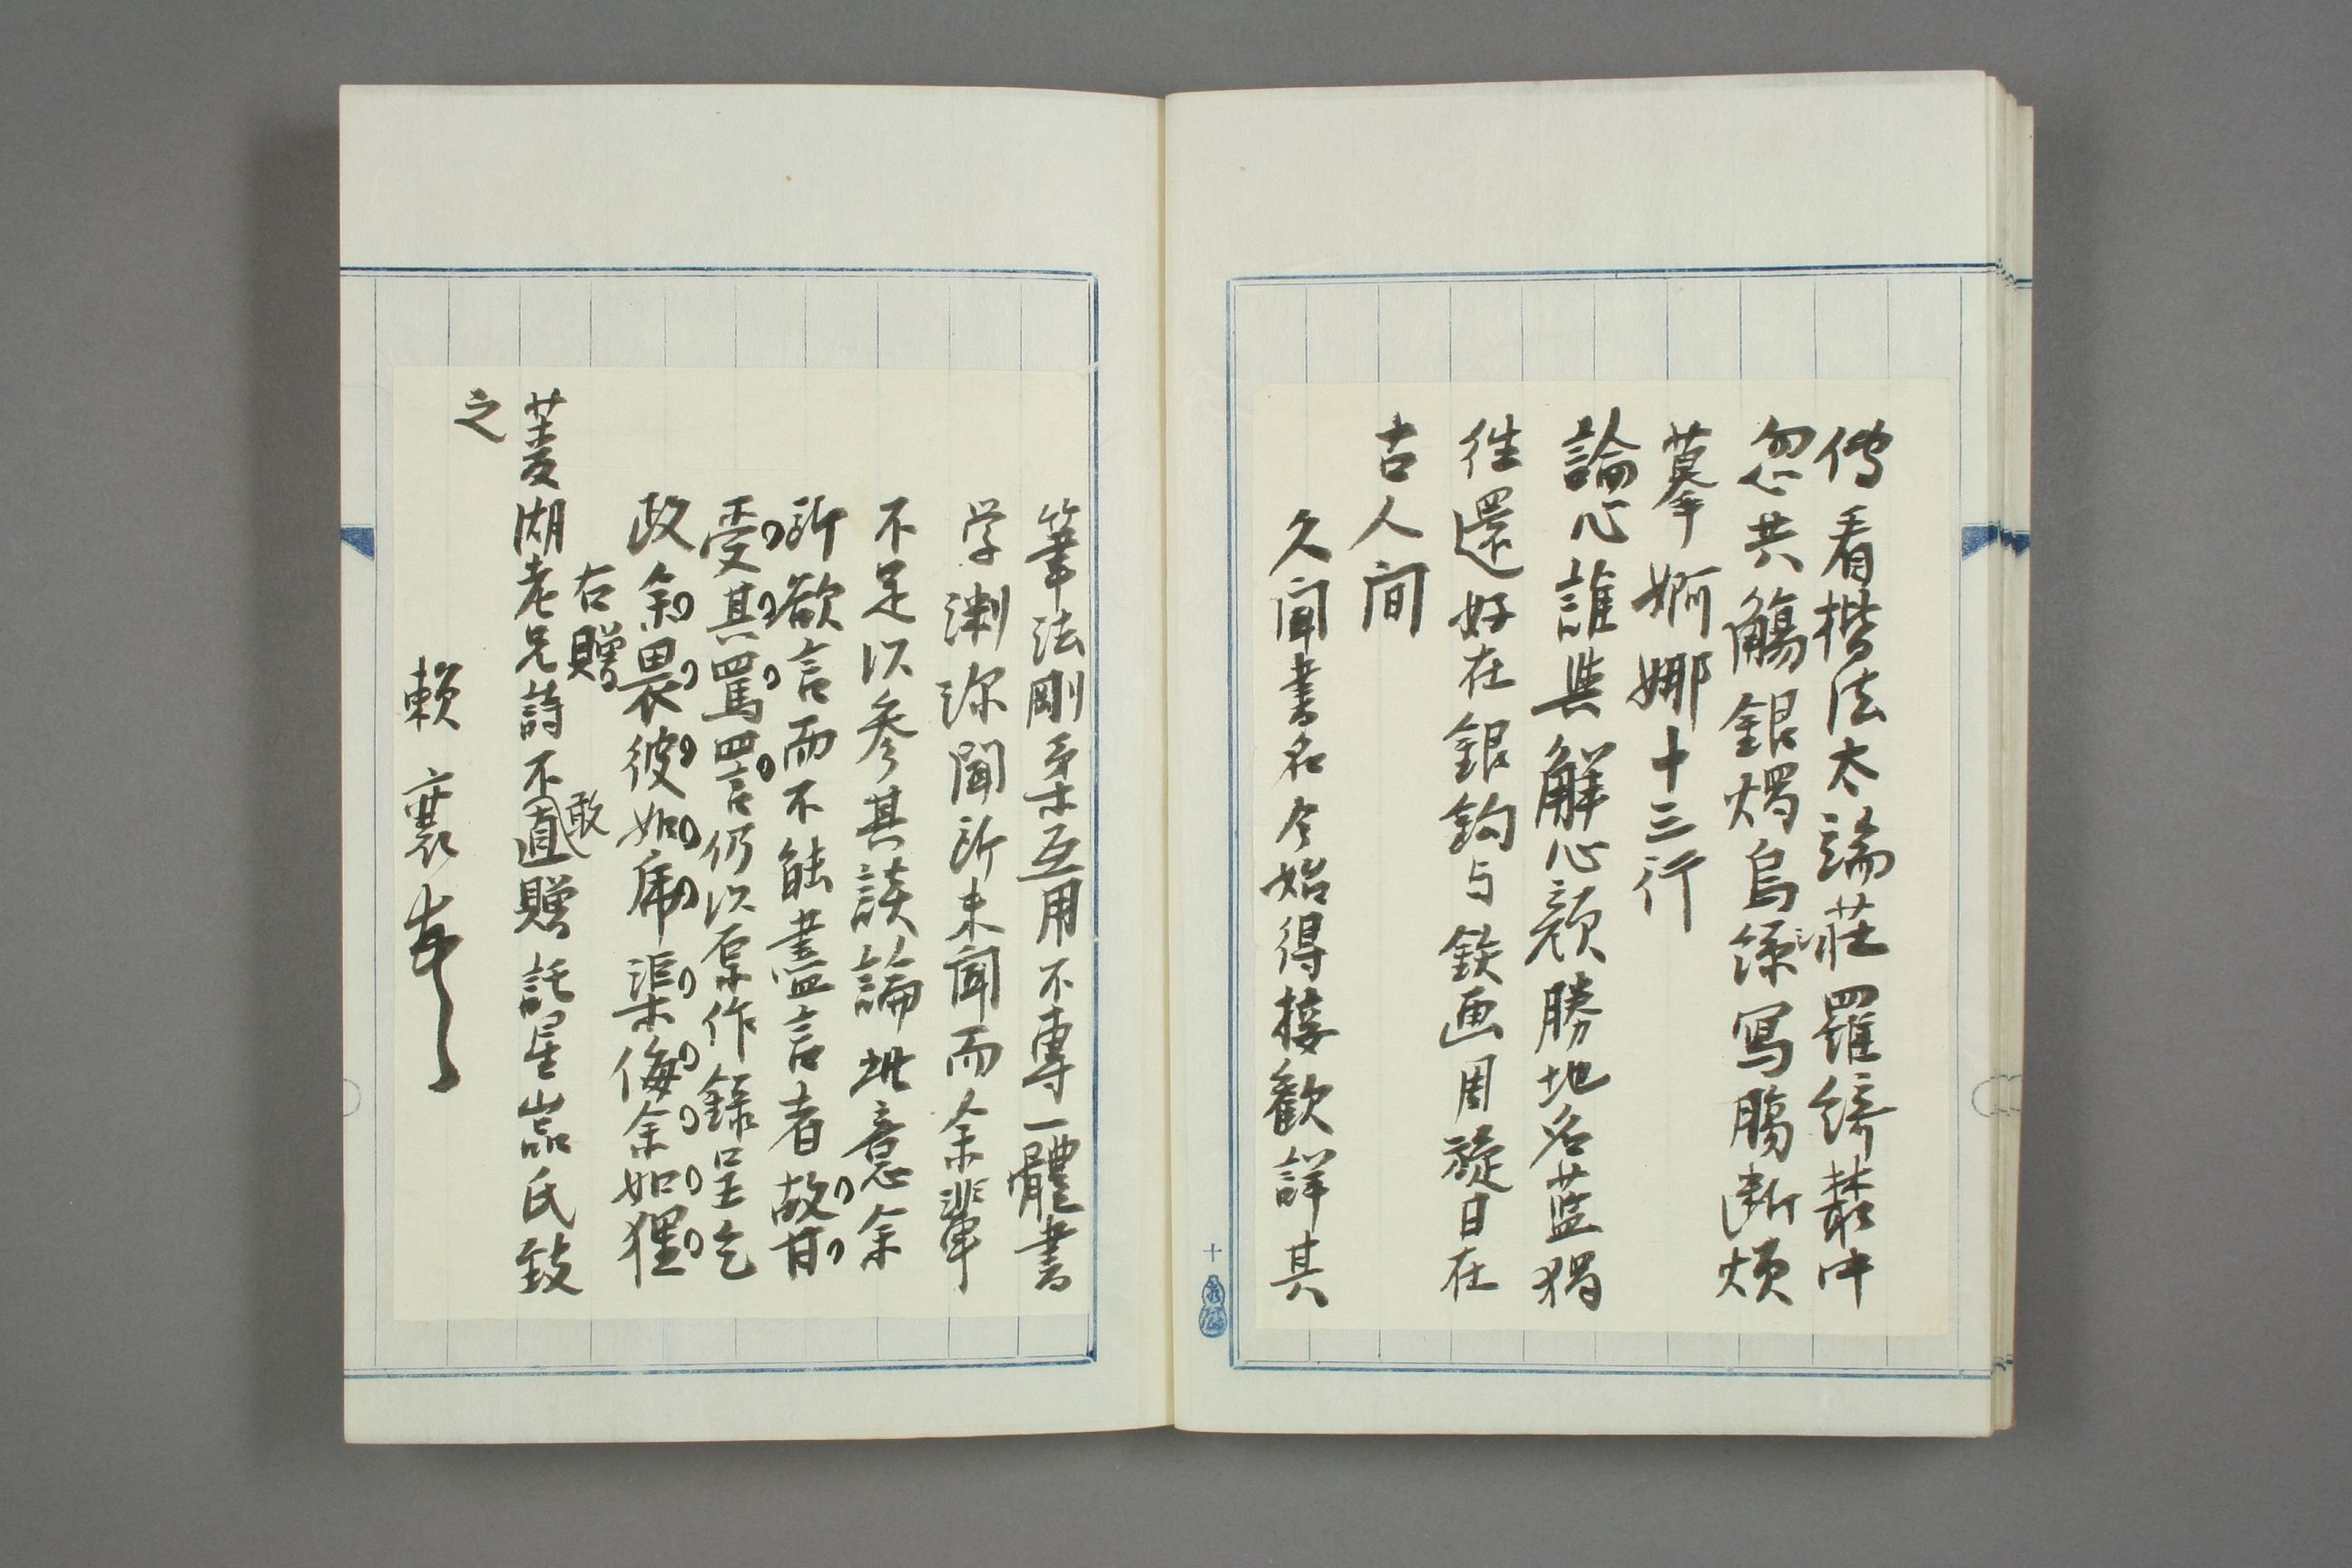 傳看楷法太端莊羅綺叢中
忽共觴銀燭烏絲写腸断煩
摹婀娜十三行
論心誰與解心顔勝地名藍獨
往還好在銀鈎与鉄画周旋日在
古人間
久聞書名今始得接歓詳其
筆法剛柔互用不専一體書
学淵深聞所未聞而余輩
不足以参其談論此意余
所欲言而不能盡言者故甘
受其罵詈仍以原作録呈乞
政余畏彼如虎渠侮余如狸
右贈
菱湖老兄詩不直敢贈託星巌氏致
之
賴襄
十